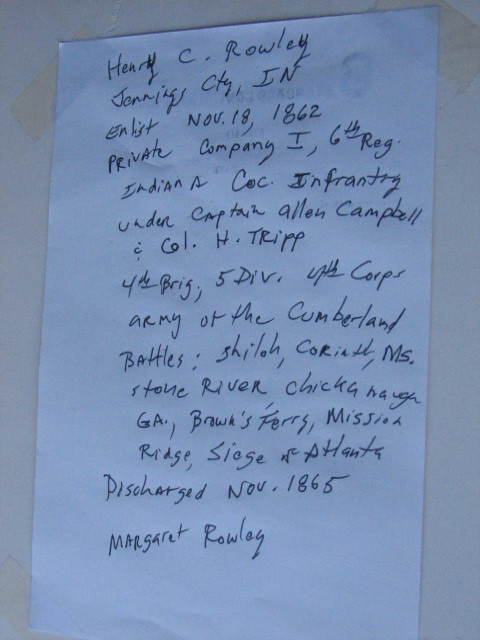 Henry C. Rowley
Jennings Cty, IN
Enlist Nov. 18, 1862
Private Company I, 6th Reg.
Indiana Coc. Infrantry
under Captain allen Campbell
& Col. H. Tripp
4th Brig, 5 Div. 4th Corps
army of the Cumberland
Battles: Shiloh, Corinth, Ms.
stone River, Chickamauga
GA., Brown's Ferry, Mission
Ridge, Siege of Atlanta
Discharged Nov. 1865
Margaret Rowley